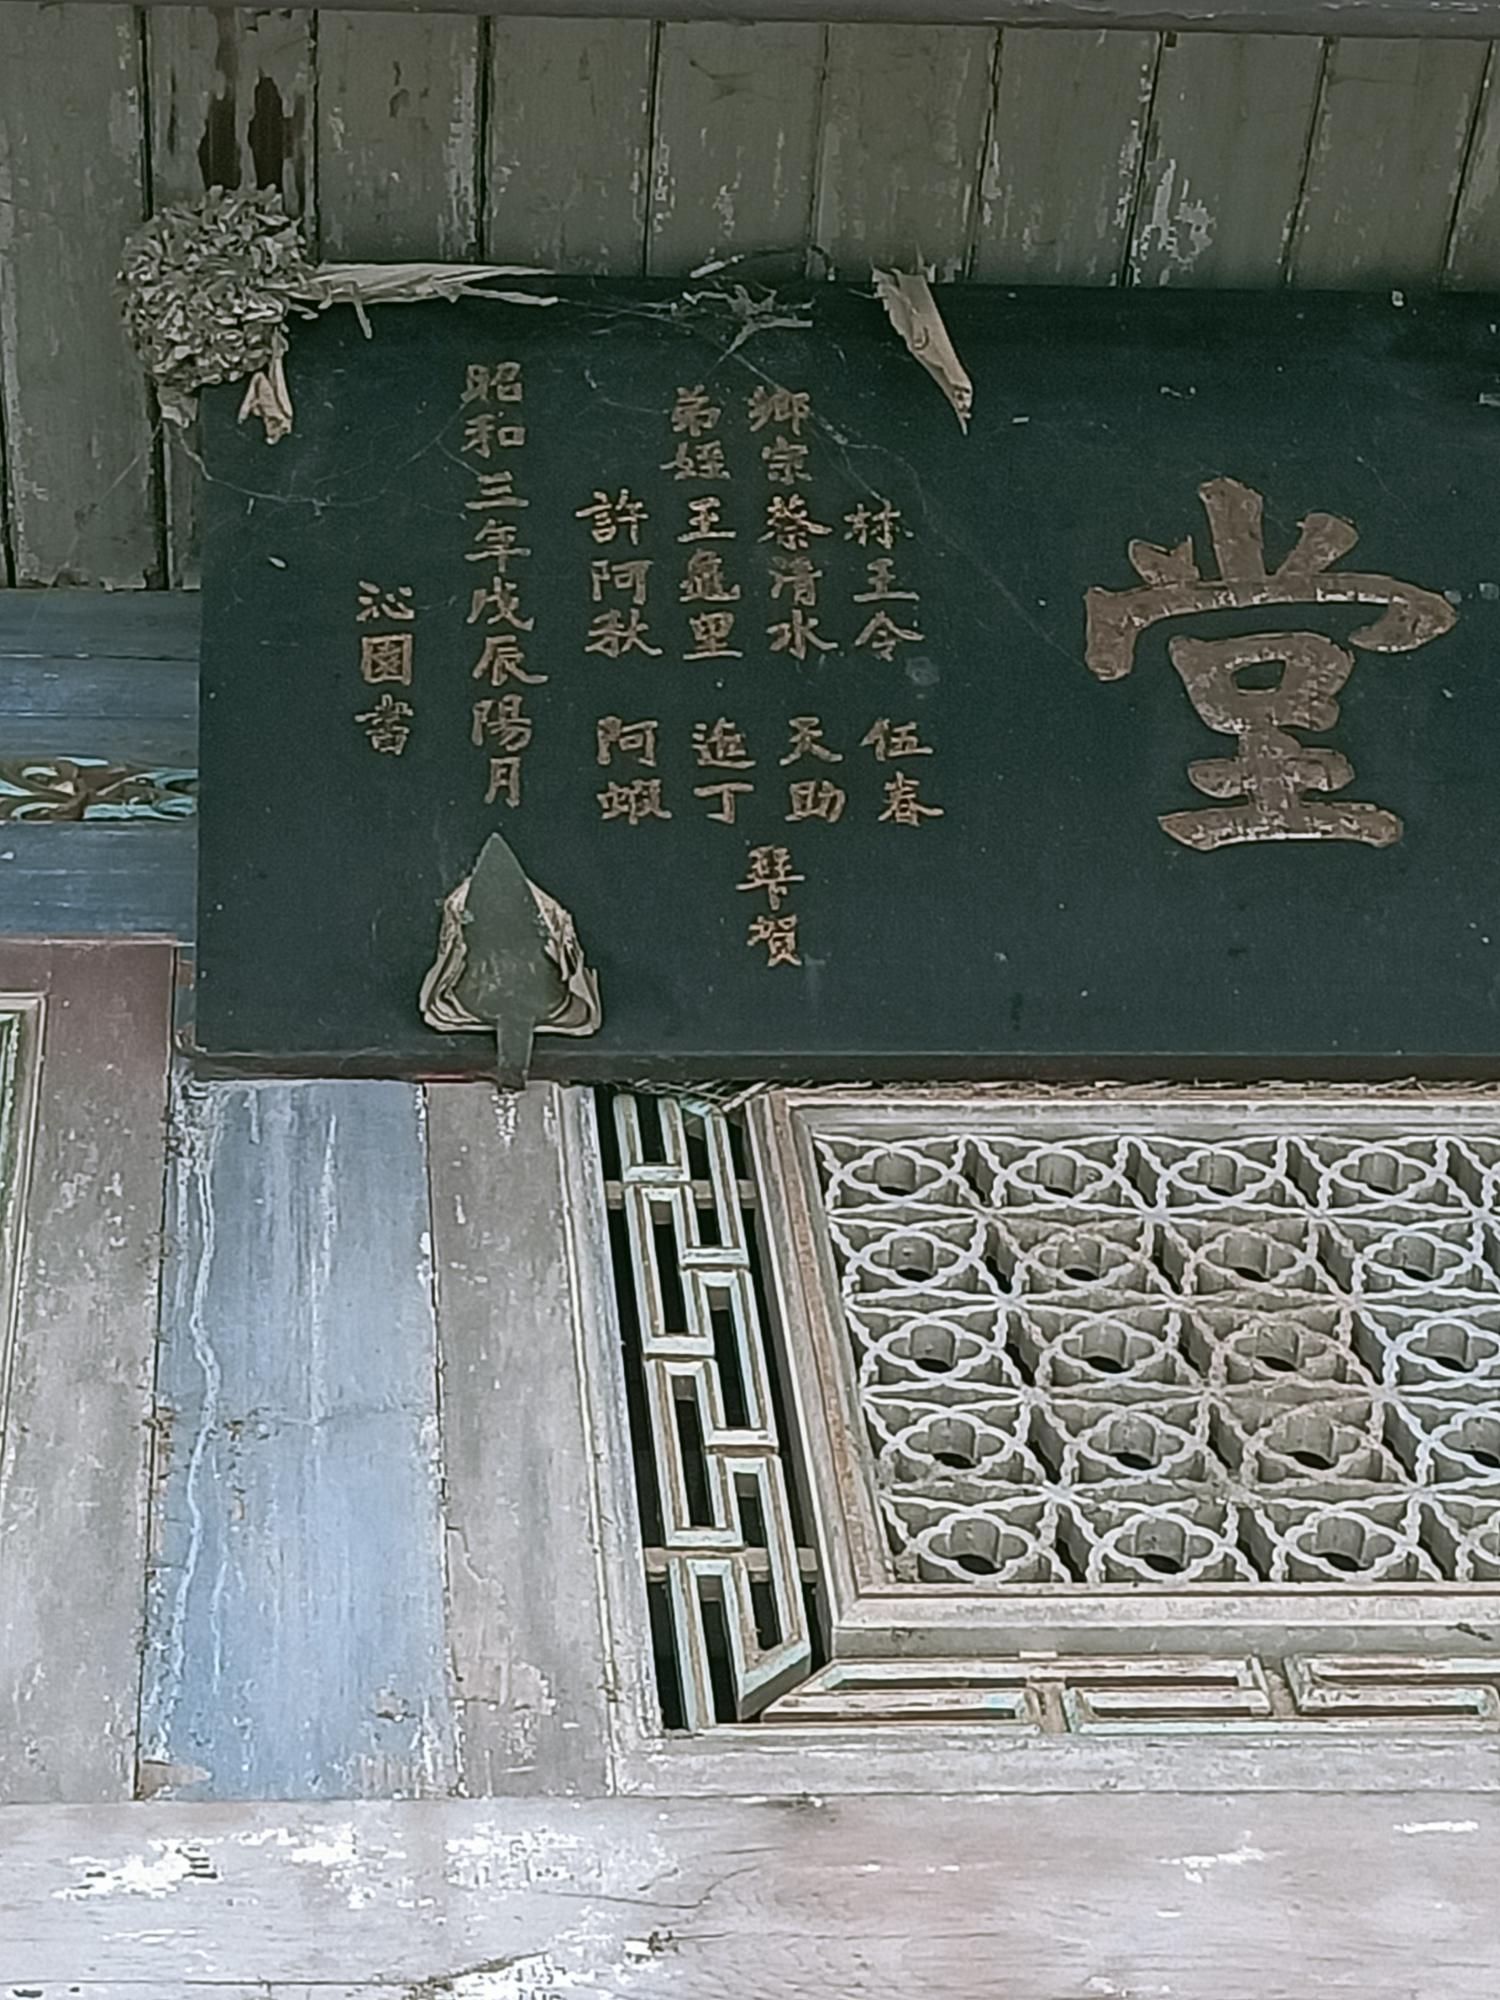 堂
林王令 伍春
鄉宗蔡清水 天助
弟姪王龜里 進丁
許阿秋 阿蝦
賀
昭和三年戊辰陽月
沁園書